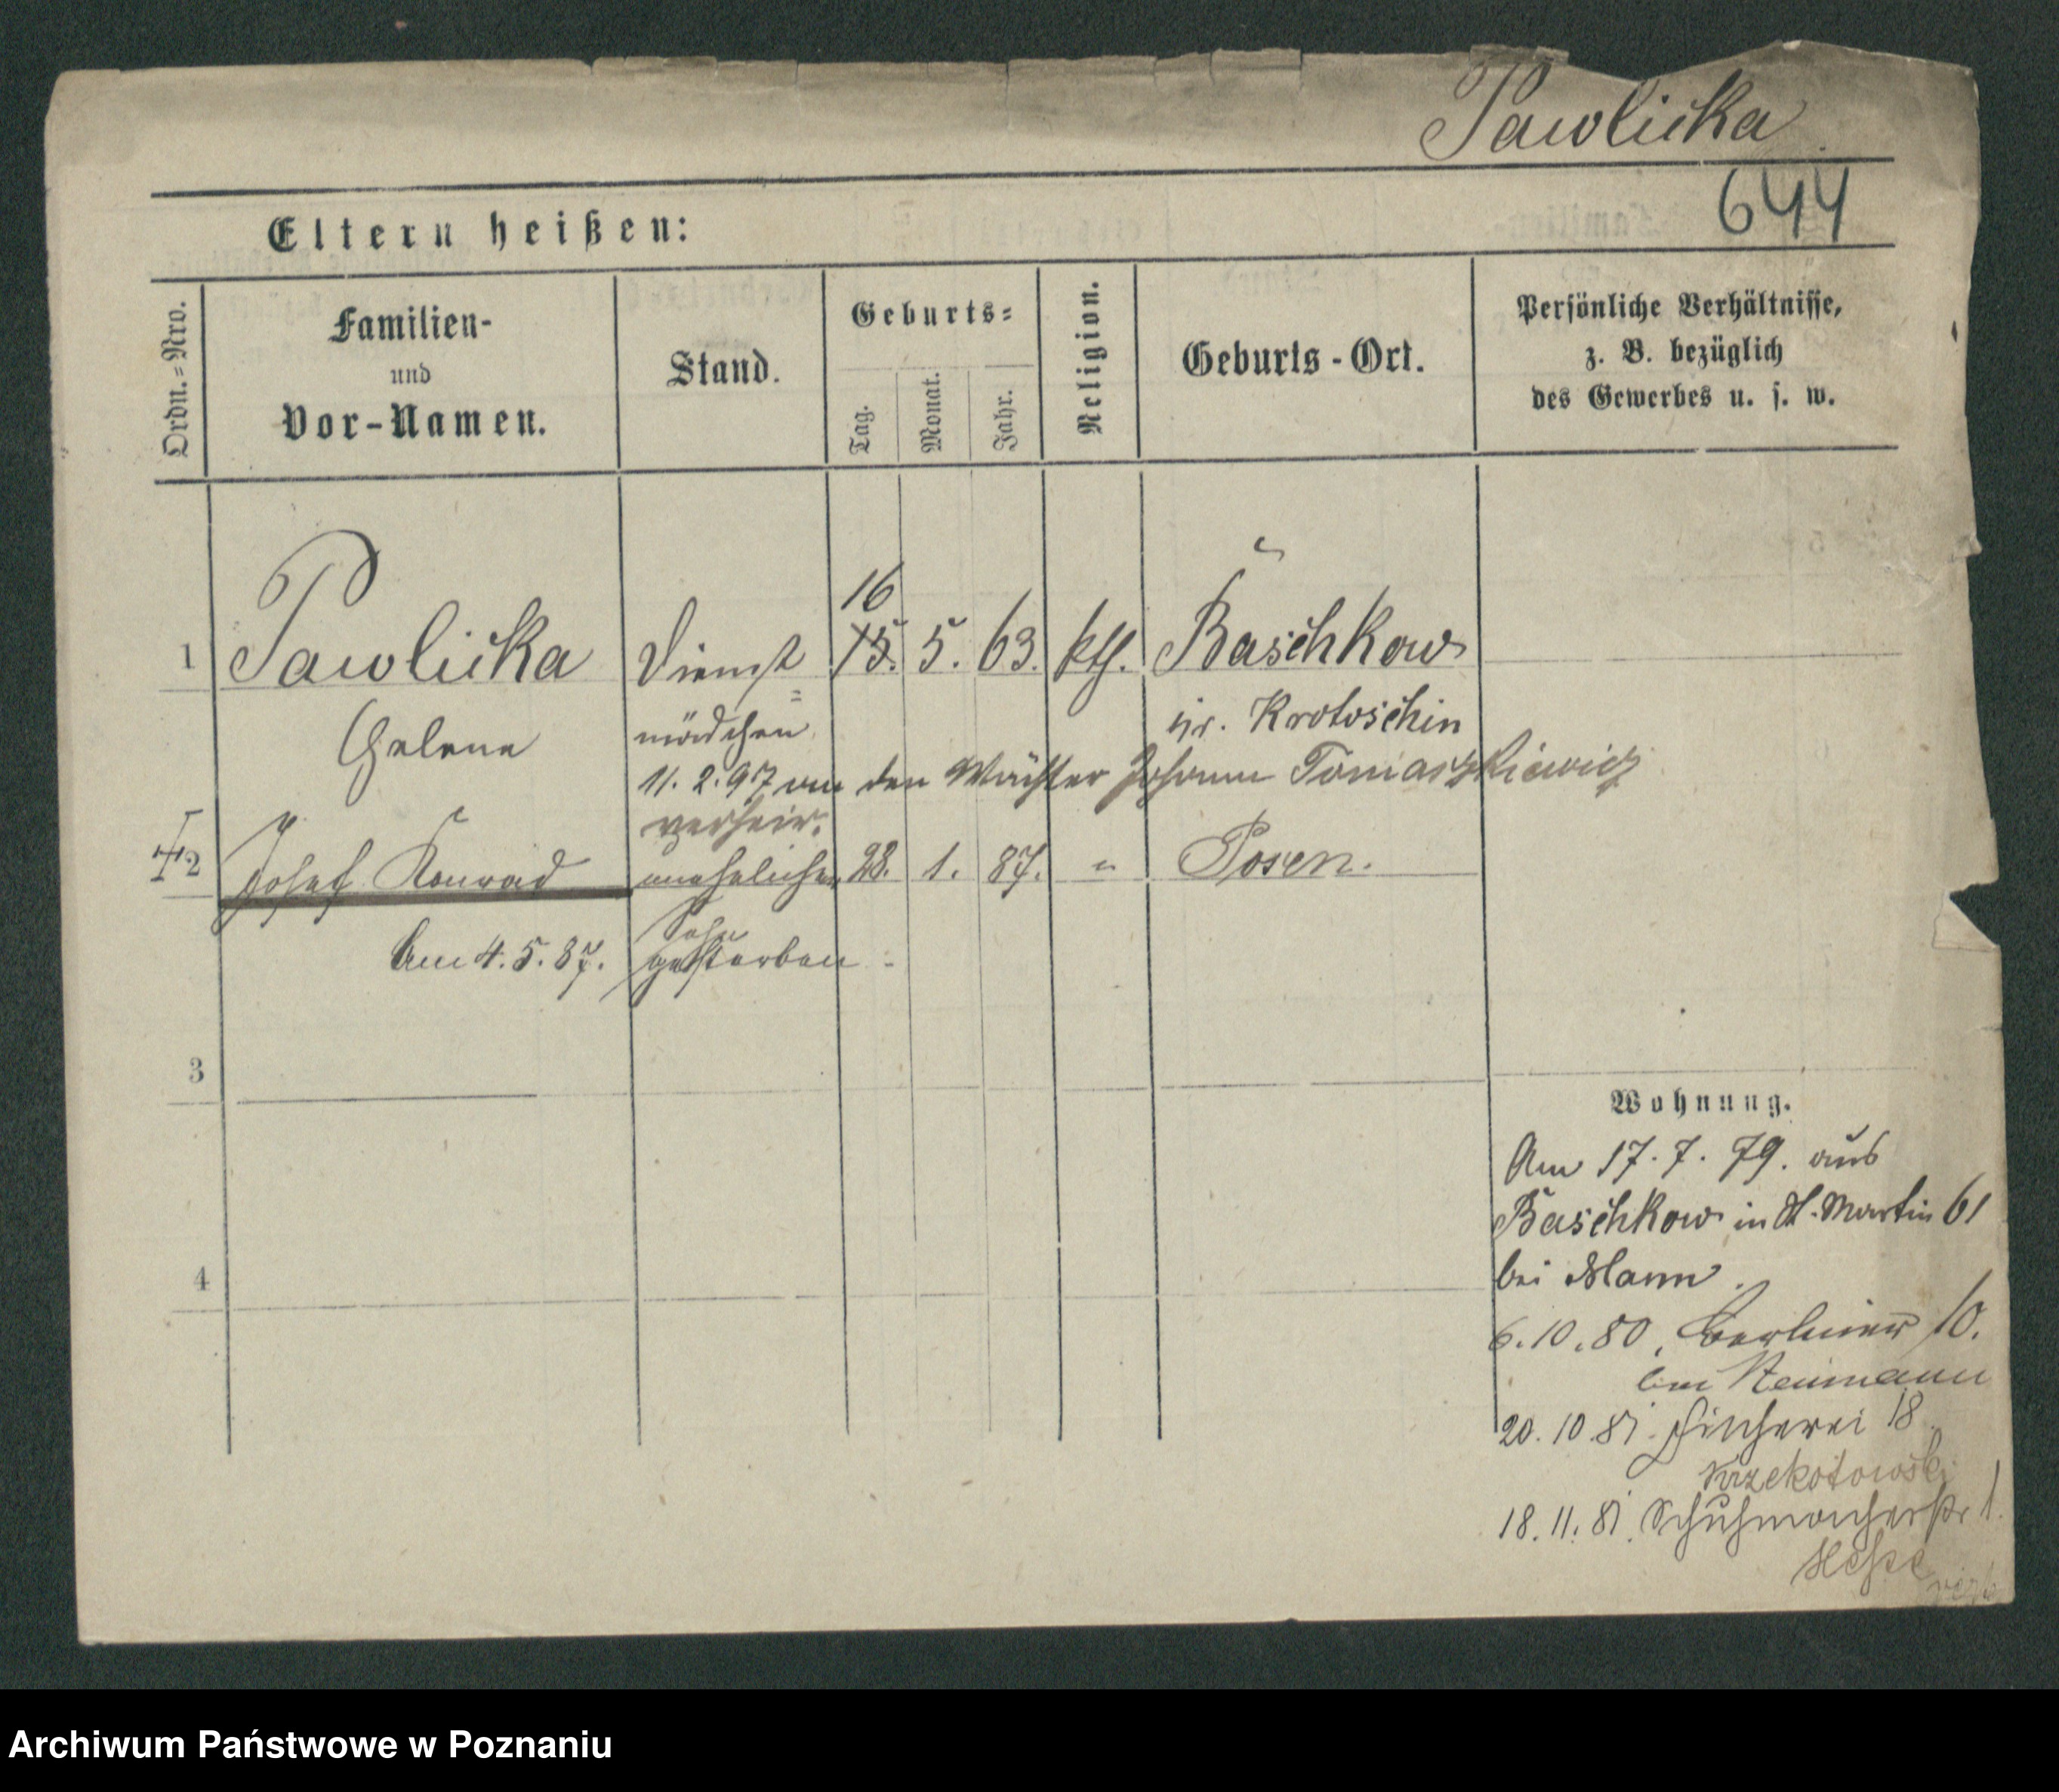 Pawlicka
644
Eltern heißen:
Ordn.-Nro.
Familien-
und
Vor-Namen.
Stand.
Geburts-
Tag.
Monat.
Jahr.
Religion.
Geburts-Ort.
Persönliche Verhältnisse,
z. B. bezüglich
des Gewerbes u. s. w.
16
1 Pawlicka Dienst= 15. 5. 63. kth. Baschkow
Helene mädchen Kr. Krotoschin
11. 2. 97 an den Wächter Johann Tomaszkiewicz
verheir.
2 Josef Konrad unehelicher 28. 1. 87. " Posen.
Sohn
Am 4. 5. 87. gestorben.
3
Wohnung.
Am 17. 7. 79. aus
Baschkow in St. Martin 61
bei Mann.
4
6. 10. 80, Berliner 10.
bei Neumann
20. 10. 81. Fischerei 18
Krzekotowski
18. 11. 81. Schuhmacherstr 1.
Hesse